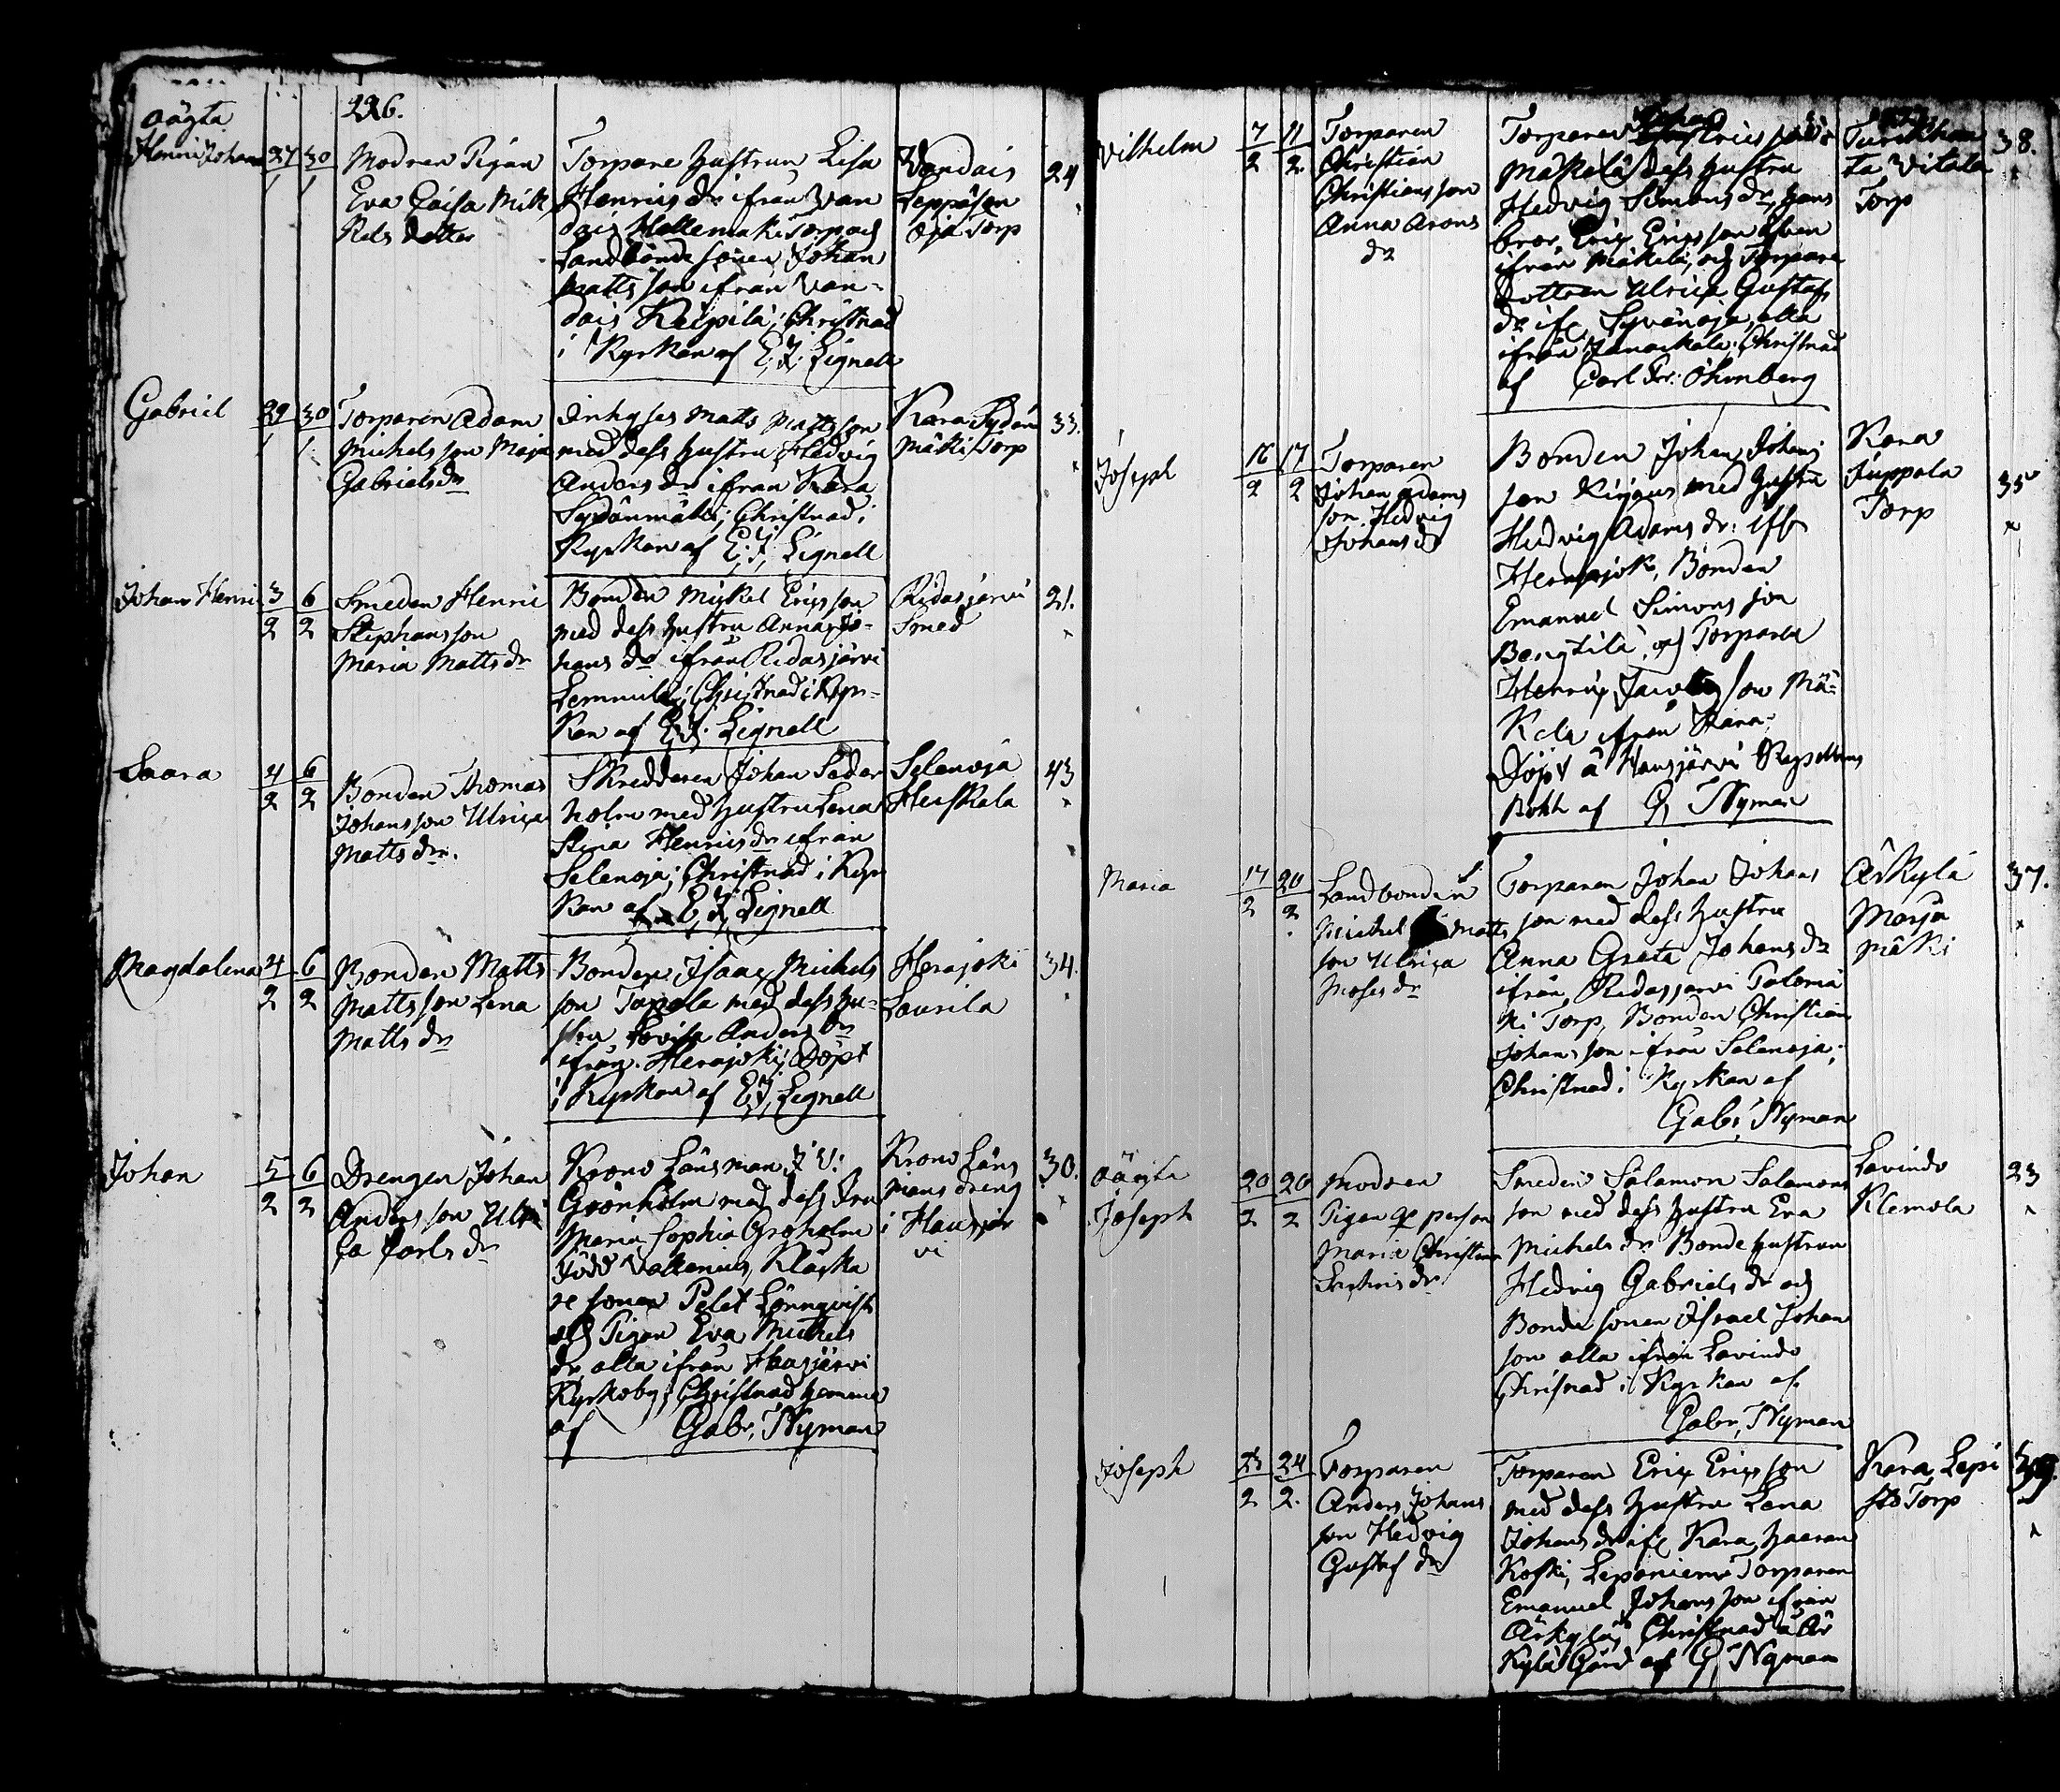 226.
oägta
Henric Johan 27/1 30/1
Modren Pigan
Eva Caisa Mik
kels dotter
Torpare hustrun Lisa
Henrics dr ifrån Van
dais Hollemäki Torp och
Landbonde sonen Johan
Matts son ifrån Van-
dais Keipilä; Christnad
i Kyrkan af E. J. Lignell
Vandais
Leppäsen
oja Torp
24
Gabriel 29/1 30/1
Torparen Adam
Michels son Maja
Gabrielsdr
Inhyses Matts Matts son
med dess hustru Hedvig
Anders dr ifrån Kara
Sydänmäki; Christnad i
Kyrkan af E. J. Lignell
Kara Sydän
mäki Torp
33.
Johan Henric 3/2 6/2
Smeden Henric
Stephans son
Maria Matts dr
Bonden Mickel Erics son
med dess hustru Anna Jo-
hans dr ifrån Ridasjärvi
Lemmilä; Christnad i Kyr-
kan af E. J. Lignell
Ridasjärvi
Smed
21.
Saara 4/2 6/2
Bonden Thomas
Johans son Ulrica
Matts dr.
Skreddaren Johan Seder
holm med hustru Lena
Stina Henrics dr ifrån
Selenoja; Christnad i Kyr
kan af E. J. Lignell
Selenoja
Heiskala
43
Magdalena 4/2 6/2
Bonden Matts
Matts son Lena
Matts dr
Bonden Isaac Michels
son Tapola med dess hu-
stru Lovisa Anders dr
ifrån Herajoki; Döpt
i Kyrkan af E. J. Lignell
Herajoki
Laurila
34.
Johan 5/2 6/2
Drengen Johan
Anders son Ulri
ca Carls dr
Krono Länsman J. V.
Grönholm med dess Fru
Maria Sophia Gröholm
född Vallenius, Klåcka
re sonen Pelet Lönnqvist
och Pigan Eva Michels
dr alla ifrån Hausjärvi
Kyrkoby; Christnad hemma
af Gabr. Nyman
Krono Läns
mans dreng
i Hausjär
vi
30.
Vilhelm 7/2 11/2
Torparen
Christian
Christians son
Anna Arons
dr
Torparen Johan Erics son
Mäkelä dess hustru
Hedvig Simons dr, hans
bror, Eric Erics son även
ifrån Mäkelä, och Torpare
dottren Ulrica Gustafs
dr ifr. Syvänoja, alla
ifrån Janackala; Christnad
af Carl Fr. Öhmberg
Turckhau
ta Vitala
Torp
38.
Joseph 16/2 17/2
Torparen
Johan Adams
son Hedvig
Johans dr
Bonden Johan Johans
son med hustru
Hedvig Adams dr. ifr
Herajok, Bonden
Emanuel Simons son
Bengtilä, och Torparen
Henric Jacobs son Mä-
kelä ifrån Kara;
Döpt å Hausjärvi
af G. Nyman
Kara
Juppala
Torp
35
Maria 17/2 20/2
Landbonden
Michel Matts
son Ulrica
Moses dr
Torparen Johan Johans
son med dess hustru
Anna Greta Johans dr
ifrån Ridasjärvi Palomä
ki Torp, Bonden Christian
Johans son ifrån Selenoja;
Christnad i Kyrkan af
Gabr. Nyman
Ärkylä
Marja
mäki
37.
oägta
Joseph 20/2 20/2
Modren
Pigan qv person
Maria Christina
Zachris dr
Smeden Salamon Salamons
son med dess hustru Eva
Michels dr Bonde hustrun
Hedvig Gabriels dr och
Bonde sonen Israel Johan
son alla ifrån Lavindo
Chrisnad i Kyrkan af
Gabr. Nyman
Lavindo
Klemola
23
Joseph 23/2 24/2.
Torparen
Anders Johans
son Hedvig
Gustaf dr
Torparen Eric Erics son
med dess hustru Lena
Johans dr ifr Kara, Haaran
koski, Leponiemi Torparen
Emanuel Johans son ifrån
Ärkylä, Christnad å Är
kylä Gård af G. Nyman
Kara, Lepi
stö Torp
39.